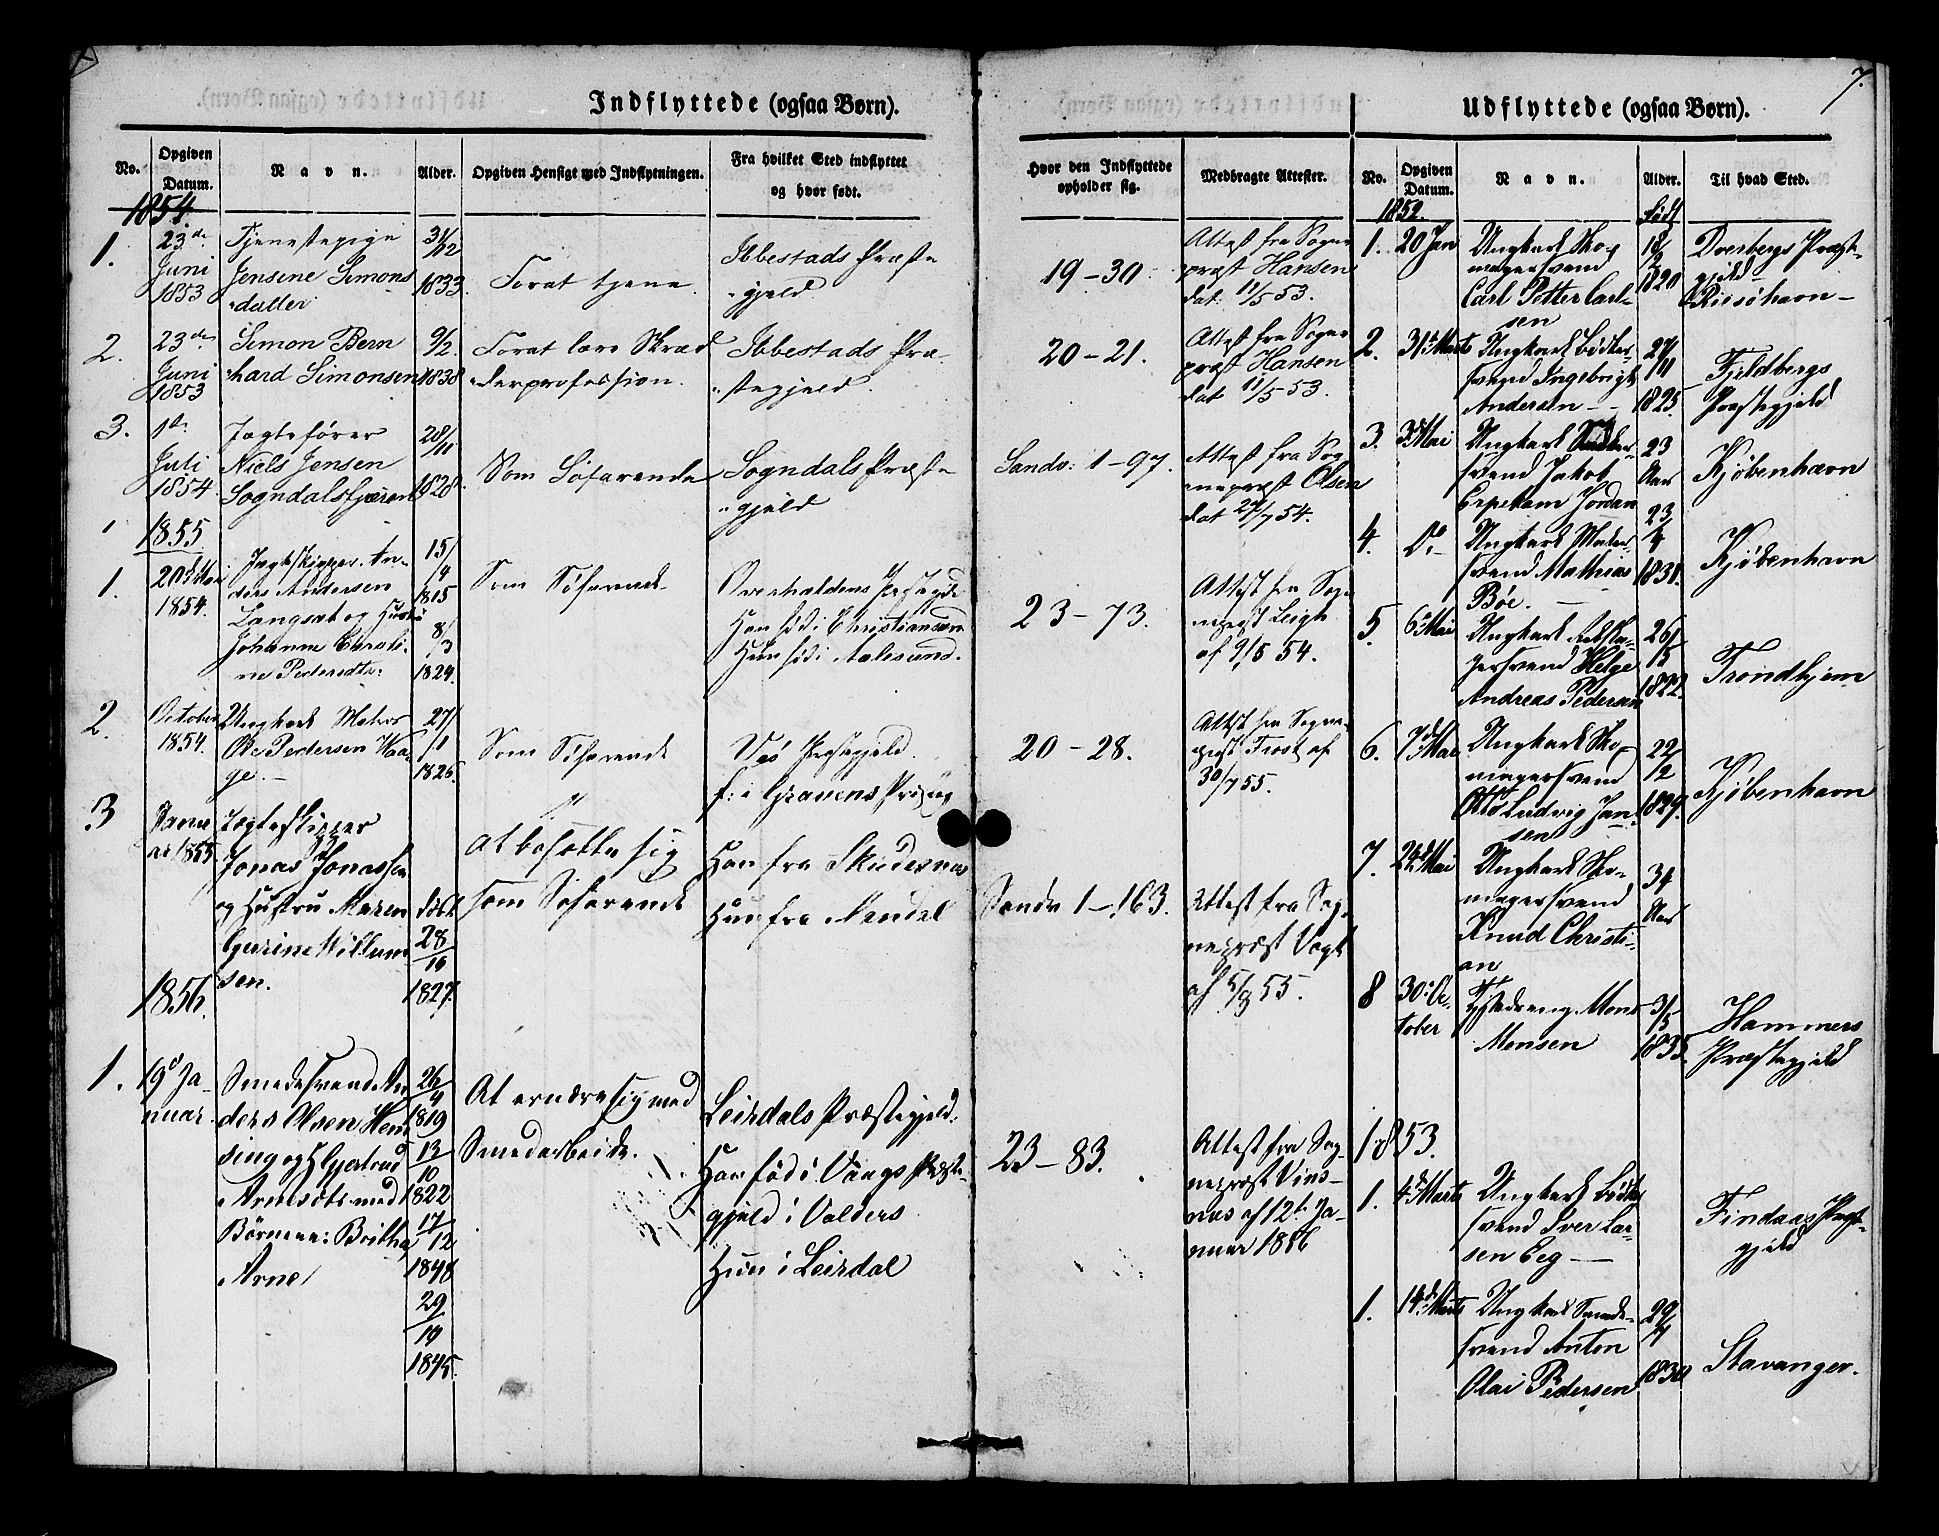 7.
Indflyttede (ogsaa Børn).
No.
Opgiven Datum.
Navn.
Alder.
Opgiven Hensigt med Indflytningen.
Fra hvilket Sted indflyttet
og hvor født.
Hvor den Indflyttede
opholder sig.
Medbragte Attester.
1854.
1.
23de
Juni
1853
Tjenestepige
Jensine Simons
datter
31/12
1833.
Forat tjene
Ibbestads Præste
gjeld.
19-30.
Attest fra Sogne
præst Hansen
dat. 11/5 53.
2.
23de
Juni
1853
Simon Bern
hard Simonsen
9/2.
1838
Forat lære Skræd
derprofession.
Ibbestads Præ
stegjeld.
20-21.
Attest fra Sogne
præst Hansen
dat 11/5 53.
3.
1de
Juli
1854.
Jagtefører
Niels Jensen
Sogndalsfjæren
28/11
1828.
Som Søfarende
Sogndals Præste
gjeld
Sandv: 1-97.
Attest fra Sog
nepræst Olsen
dat 24/7 54.
1855
1.
1854.
Jagtskipper An-
ders Andersen
Langsæt og Hustru
Johanne Caroli-
ne Pedersdtr:
15/4
1815
8/3
1824.
Som Søfarende
Overhaldens
Han född i Christiansund
Hun föd i Aalesund.
23-73.
Attest fra Sog
nepræst Leigh
af 9/5 54.
2.
October
1854.
Ungkarl Matros
Ole Pedersen Haa-
ge.-
27/1
1825.
Som Søfarende
Præstegjeld.
f: i Gravens
20-28.
Attest fra Sogne-
præst Frost af
30/7 55.
3
Janu
ar 1855
Jagteskipper
Jonas Jonassen
og Hustru Maren
Gurine Willum
sen.
født
28/10
1827.
At bosætte sig
som Søfarende
Han fra Skudesnæs
Hun fra Mandal
Sandv 1-163.
Attest fra Sog
nepræst Vogt
af 5/8 55.
1856.
1.
19d Ja-
nuar.
Smedesvend An
ders Olsen Hem
sing og H. Gjertrud
Arnesdtr med
Børnene: Britha
Arne
26/4
1819
13/10
1822
17/12
1848
29/10
1845.
At ernære sig med
Smedarbeide.
Leirdals Præstegjeld:
Han född i Vangs Præste-
gjeld i Valders
Hun i Leirdal
23-83.
Attest fra Sog-
nepræst Vins-
næs af 12te Ja-
nuar 1856
Udflyttede (ogsaa Børn).
No.
Opgiven
Datum.
Navn.
Alder.
Til hvad Sted.
1852.
født
1.
20 Jan
Ungkarl Sko-
magersvend
Carl Petter Carl-
sen
18/2
1820
Dverbergs Præst-
gjeld
Risøhavn-
2.
31te Marts
Ungkarl Bødker-
svend Ingebrigt
Andersen -
27/11
1825.
Fjeldbergs
Præstegjeld
3.
3d Mai
Ungkarl
svend Jakob
Erpekam Jordan
23
Aar
Kjøbenhavn
4.
Do.
Ungkarl Maler-
svend Mathias
Bøe.
23/4
1831.
Kjøbenhavn
5.
6te Mai
Ungkarl
gersvend Helge
Andreas Pedersen
26/5
1822.
Trondhjem
6.
7d Mai
Ungkarl Sko-
magersvend
Otto Ludvig Jan-
sen
22/12
1829.
Kjøbenhavn
7.
24d Mai
Ungkarl Sko-
magersvend
Knud Christi-
an
34
Aar
8
30te Oc-
tober
Mons
Monsen
3/5
1835.
Hammers
Præstegjeld
1853.
1.
4d Marts
Ungkarl Bødker
svend Iver Lar-
sen Eeg -
Findaas Præst-
gjeld
1.
14d Marts
Ungkarl Smede-
svend Anton
Olai Pedersen
29/4
1830
Stavanger.